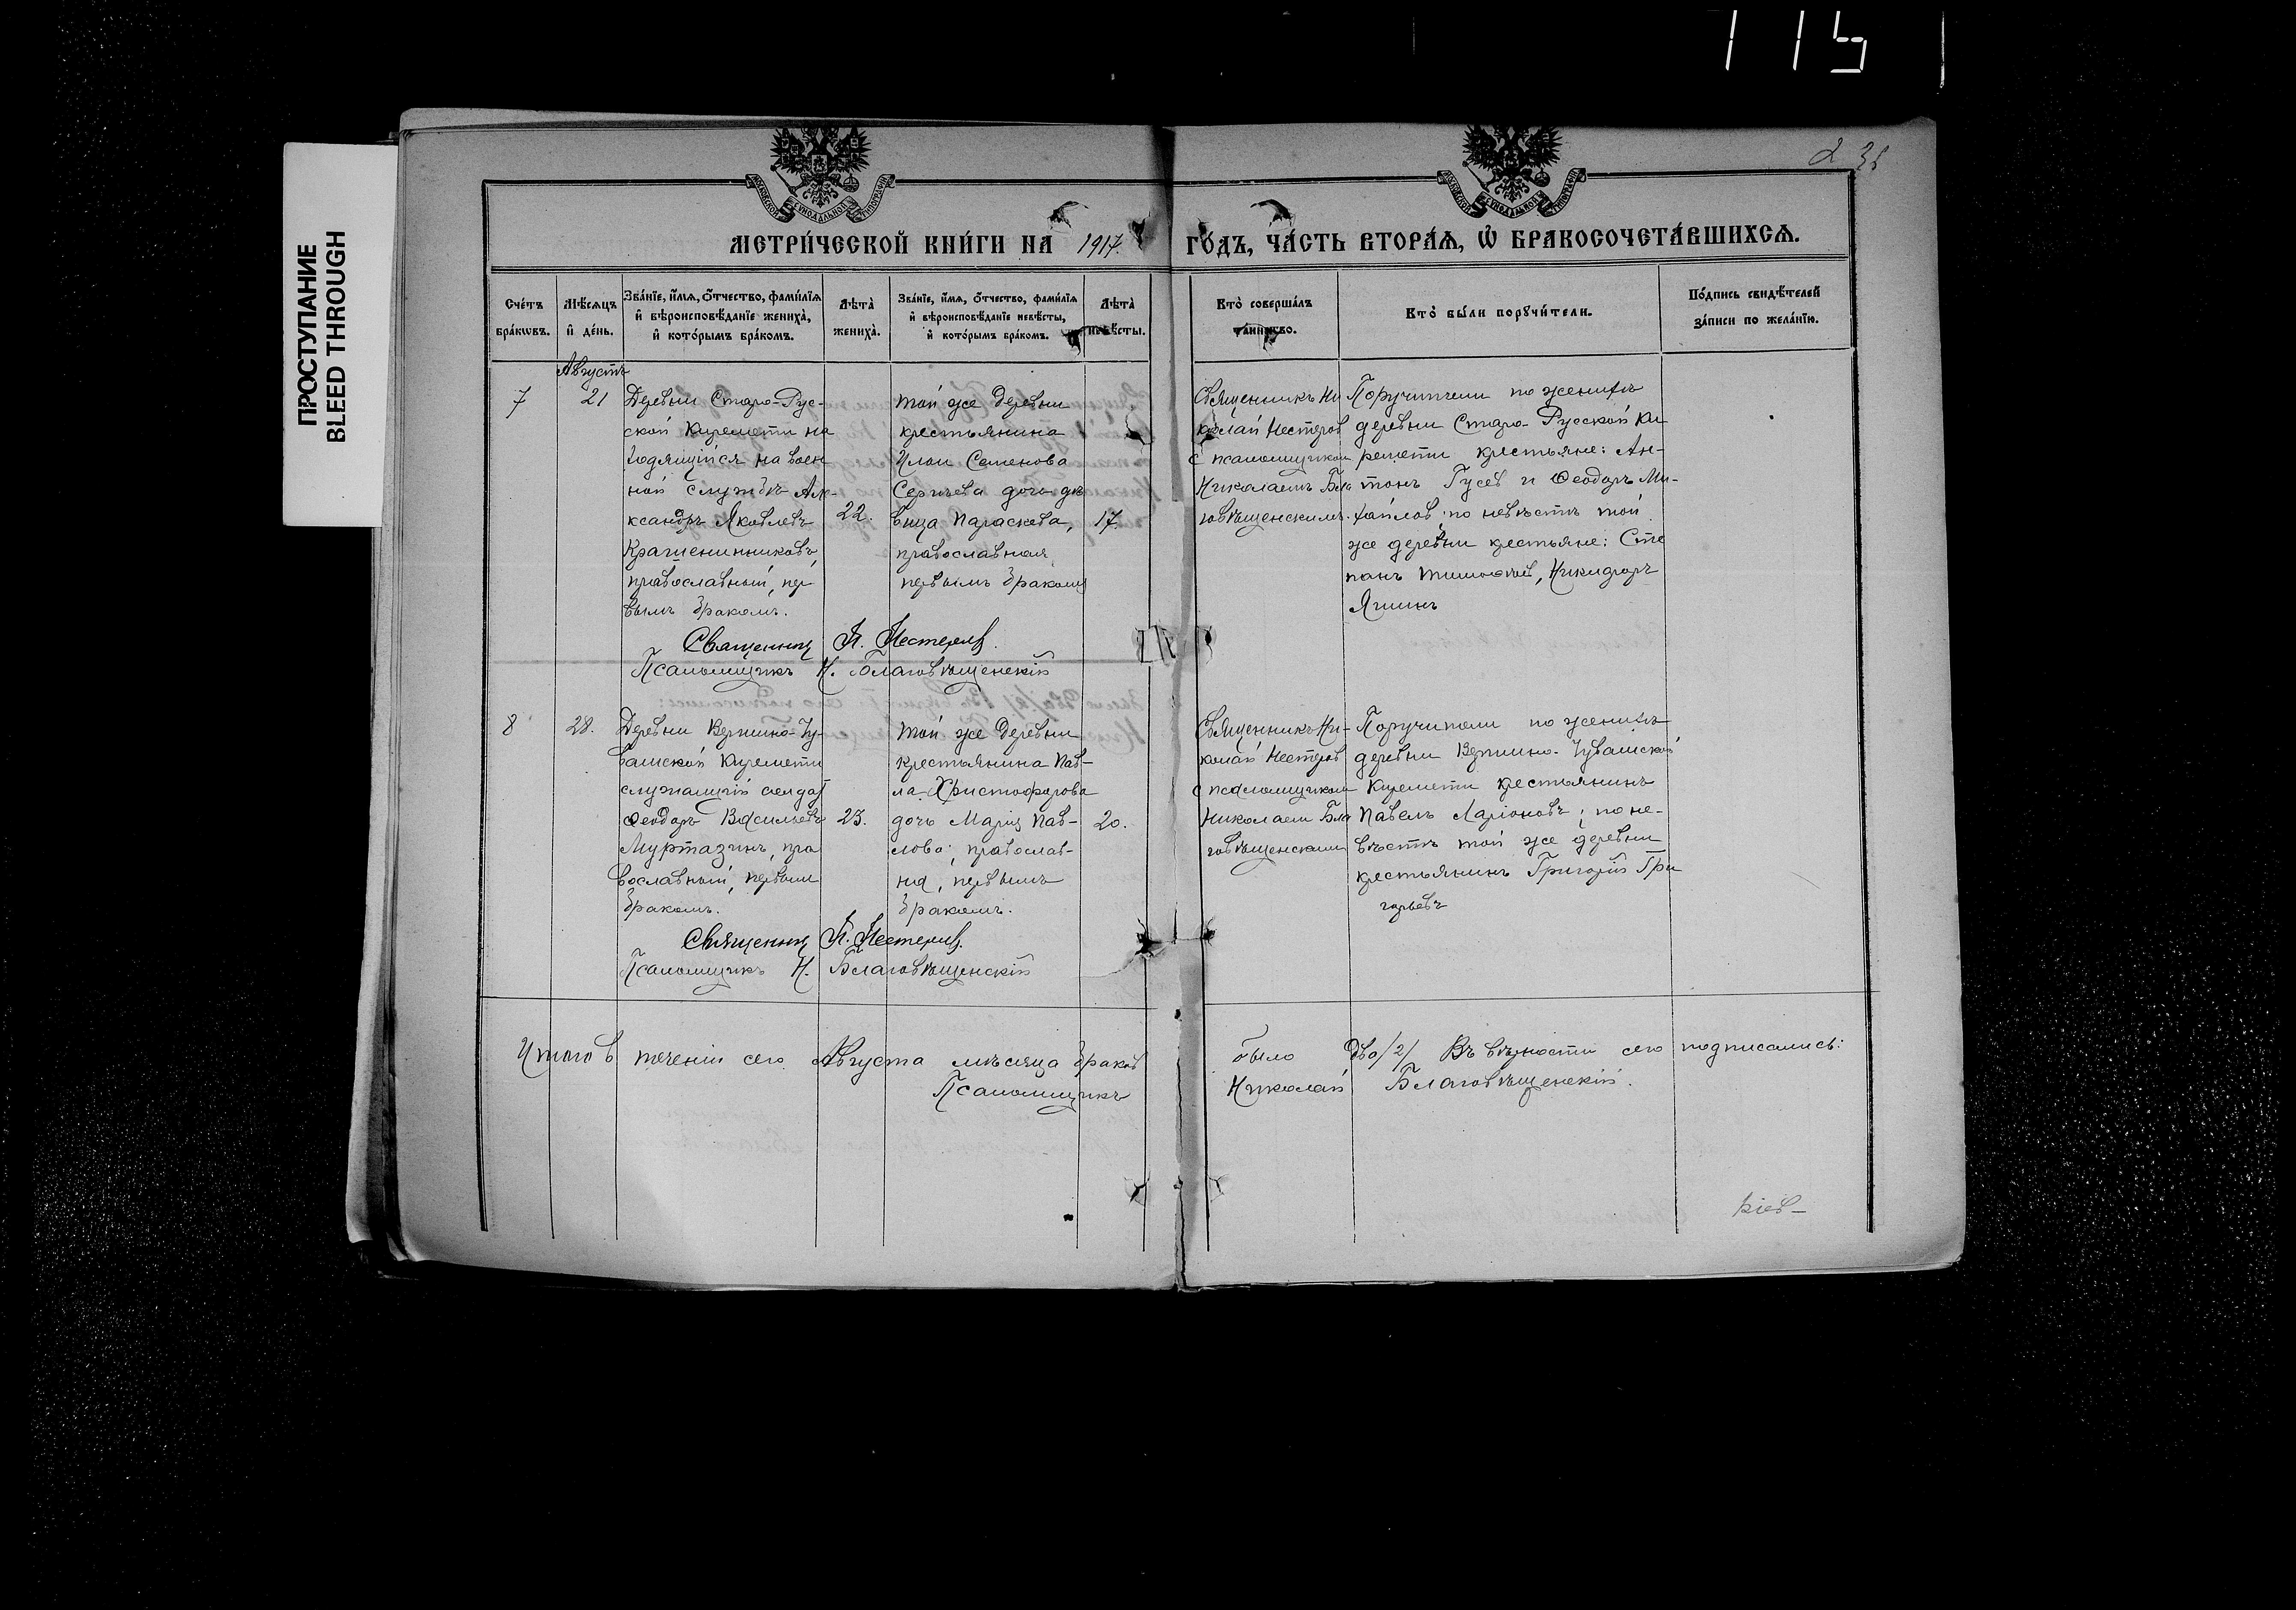 115
ПРОСТУПАНИЕ
BLEED THROUGH
МЕТРИ́ЧЕСКОЙ КНИ́ГИ НА 1917. ГО́ДЪ, ЧА́СТЬ ВТОРА́Я, Ѡ БРАКОСОЧЕТА́ВШИХСЯ.
Сче́тъ бра́кѡвъ.
Мѣ́сяцъ и де́нь.
Зва́нїе, и́мя, о́тчество, фами́лїя и вѣроисповѣ́данїе жениха̀, и кото́рымъ бра́комъ.
Лѣта̀ жениха̀.
Зва́нїе, и́мя, о́тчество, фами́лїя и вѣроисповѣ́данїе невѣ́сты, и кото́рымъ бра́комъ.
Лѣта̀ невѣ́сты.
Кто̀ соверша́лъ та́инство.
Кто̀ бы́ли поручи́тели.
По́дпись свидѣ́телей за́писи по жела́нїю.
Августъ
7
21
Деревни Старо-Рус-
ской Киремети на
ходящійся на воен
ной службѣ Але-
ксандръ Яковлевъ
Крашенинниковъ
православный, пер
вымъ бракомъ.
22.
той же деревни
крестьянина
Ильи Семенова
Сергѣева дочь дѣ
вица Параскева,
православная
первымъ бракомъ
17
Священникъ Ни
колай Нестеров
с псаломщиком
Николаемъ Бла
говѣщенскимъ.
Поручители по женихѣ
деревни Старо-Русской Ки
ремети крестьяне: Ан-
тонъ Гусев и Феодоръ Ми-
хайлов; по невѣстѣ той
же деревни крестьяне: Сте
панъ Тимофеев, Никифоръ
Яшинъ
Священник Н. Нестеров.
Псаломщикъ Н. Благовѣщенскій
8
28.
Деревни Вершино-Чу-
вашской Киремети
служащій солдат
Феодоръ Васильевъ
Муртазинъ, пра
вославный, первым
бракомъ.
23.
той же деревни
крестьянина Пав-
ла Христофорова
дочь Марія Пав-
лова, православ-
на, первымъ
бракомъ.
20.
Священникъ Ни-
колай Нестеров
с псаломщиком
Николаем Бла
говѣщенским
Поручители по женихѣ
деревни Вершино-Чувашской
Киремети крестьянинъ
Павелъ Ларіоновъ; по не-
вѣстѣ той же деревни
крестьянинъ Григорій Гри
горьевъ
Священник Н. Нестеров.
Псаломщикъ Н. Благовѣщенскій
Итого в теченіи сего Августа мѣсяца браков было два /2/ Въ вѣрности сего подписались:
Псаломщикъ Николай Благовѣщенскій.